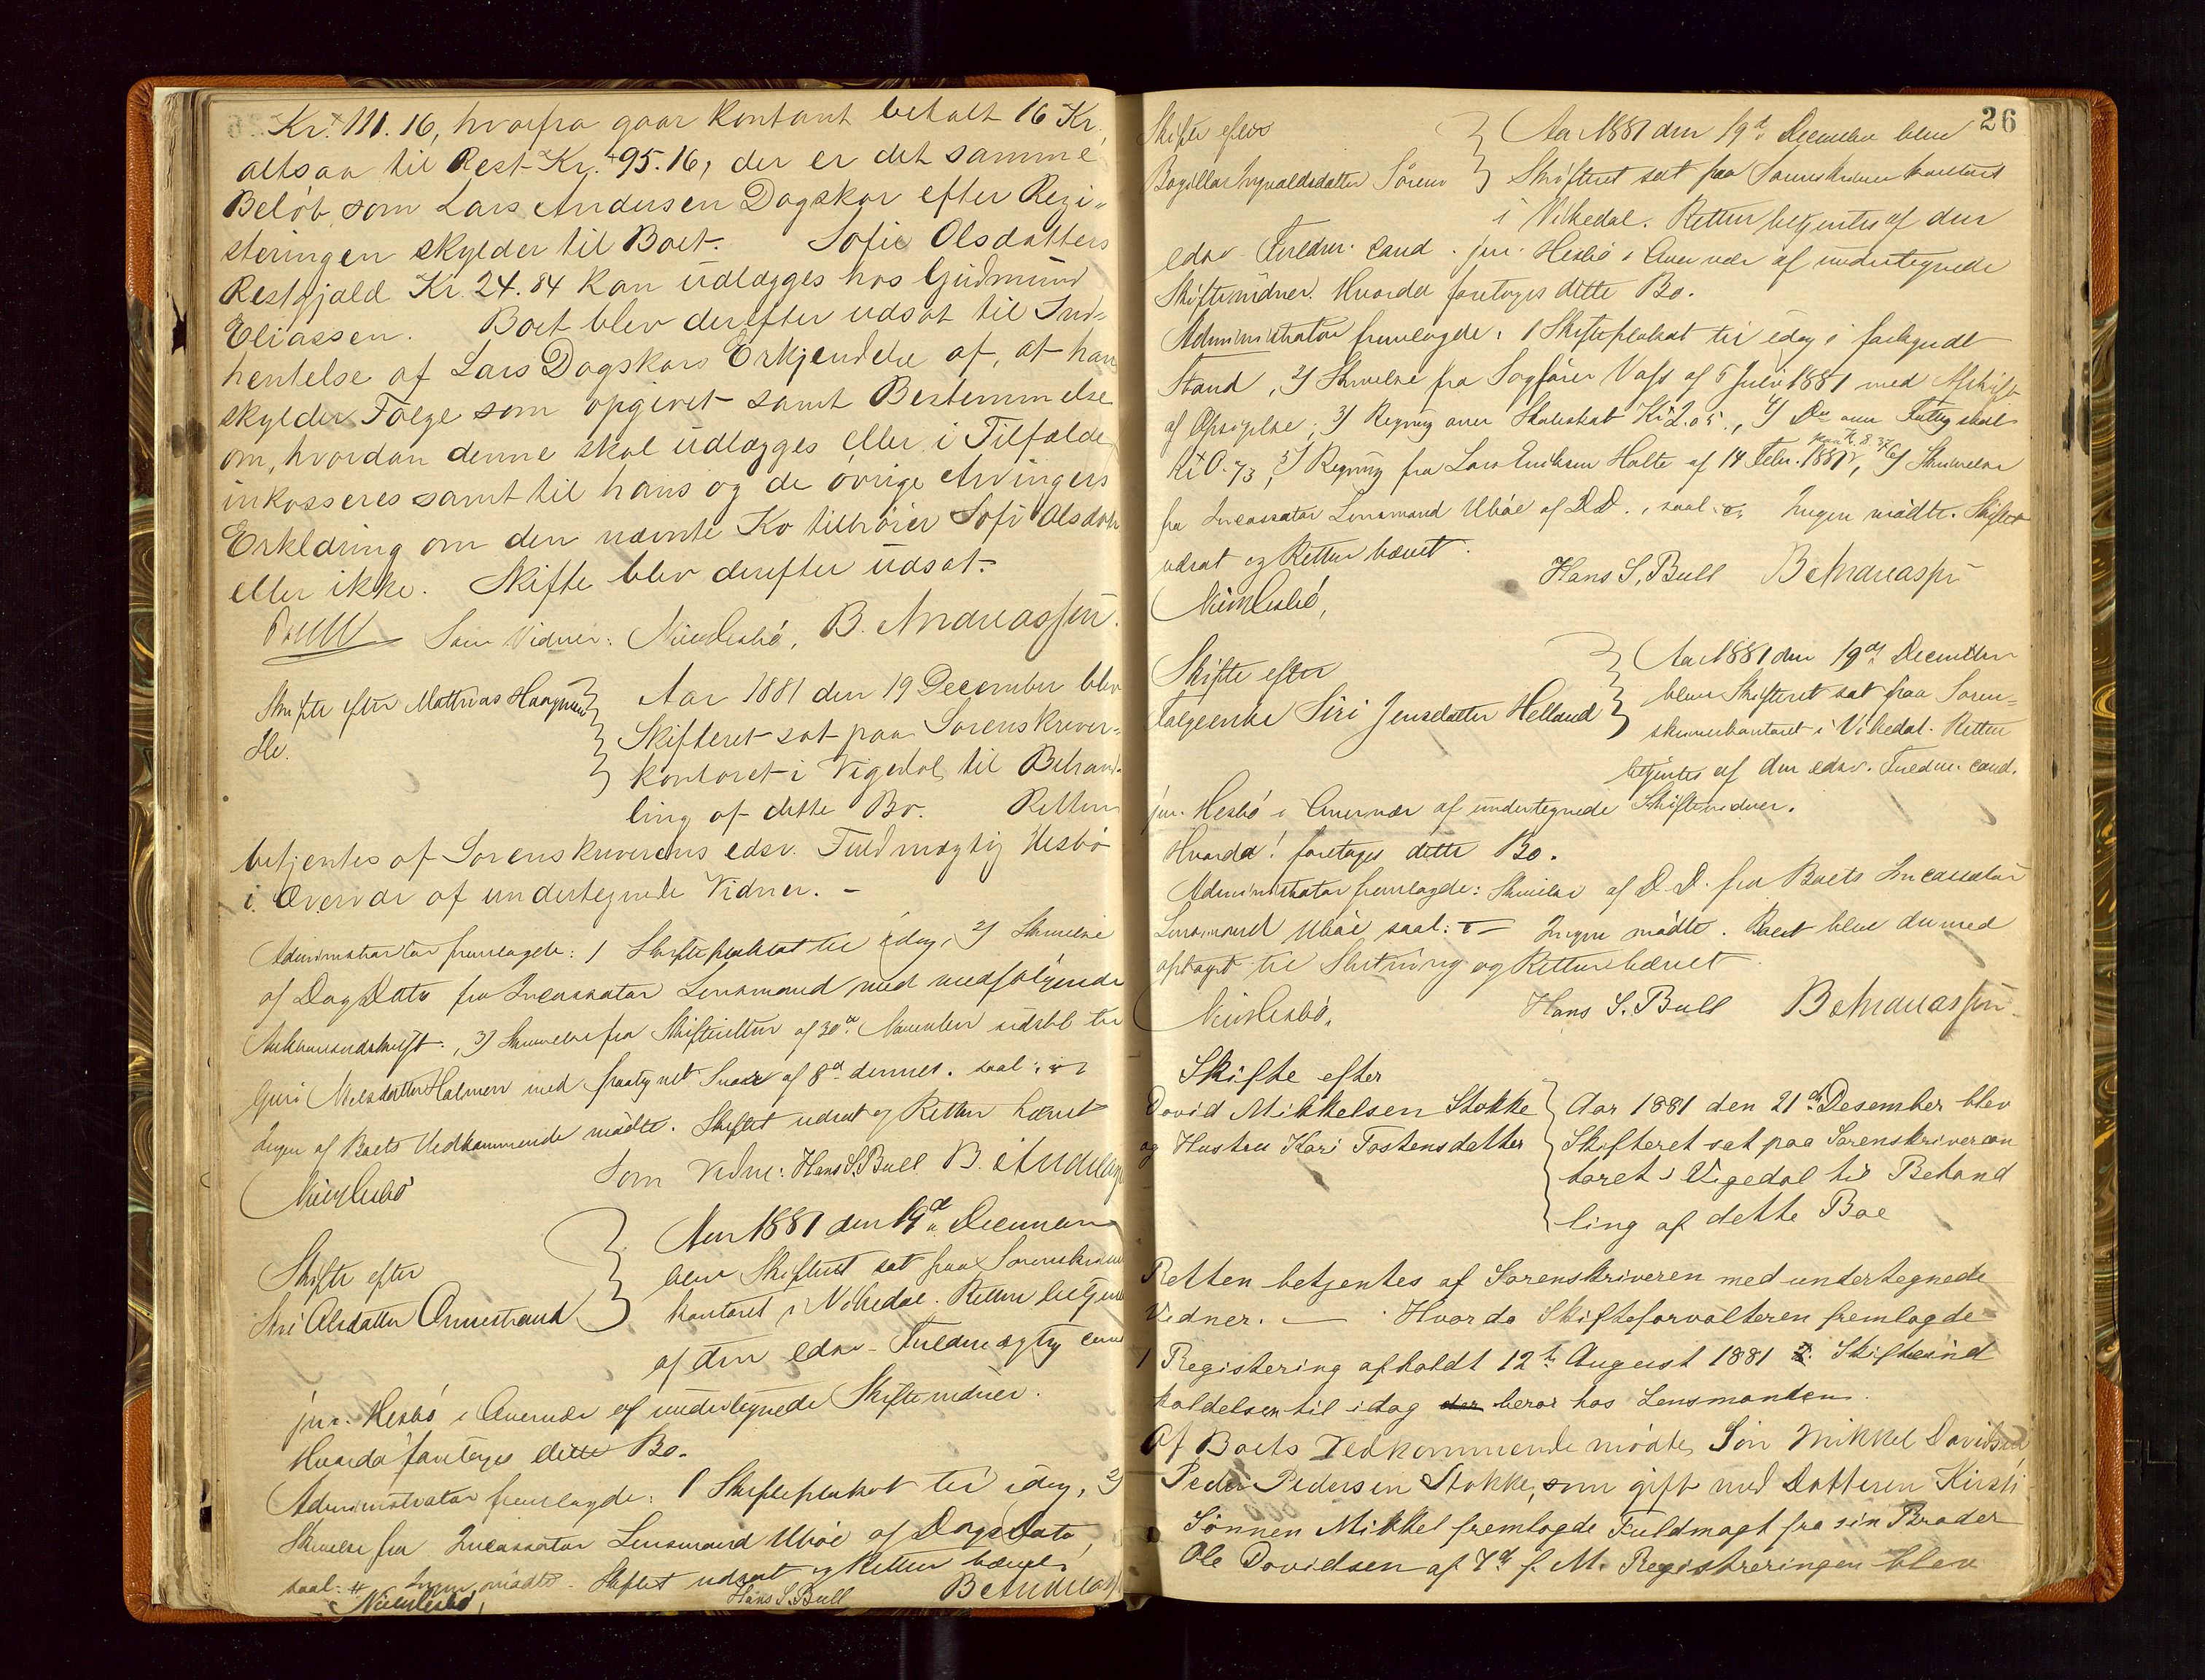 Kr. 111.16, hvorfra gaar kontant betalt 16 Kr.
altsaa til Rest Kr. 95.16, der er det samme
Beløb som Lars Andersen Dagskar efter Regi-
steringen skylder til Boet. Sofie Olsdatters
Restgjæld Kr. 24.84 kan udlægges hos Gudmund
Eliassen. Boet blev derefter udsat til Ind-
hentelse af Lars Dagskars Erkjendelse af, at han
skylder Følge som opgivet samt Bestemmelse
om, hvordan denne skal udlægges eller i Tilfælde
inkasseres samt til hans og de øvrige Arvingers
Erklæring om den nævnte Ko tilhører Sofi Olsdatr
eller ikke. Skifte blev derefter udsat.
Som Vidner: B. Andreassen.
Skifte efter Mathias
Aar 1881 den 19 December blev
Skifteret sat paa Sorenskriver-
kontoret i Vigedal til Behand-
ling af dette Bo. Retten
betjentes af Sorenskriverens edsv. Fuldmægtig Hesbø
i Overvær af undertegnede Vidner. –
Administrator fremlagde: 1 Skifteplakat til idag, 2) Skrivelse
af Dags Dato fra Incassator Lensmand med medfølgende
3) Skrivelse fra Skifteretten af 30te November sidstl. til
Guri Nielsdatter med paategnet Svar af 8de dennes. saal:
Ingen af Boets Vedkommende mødte. Skiftet udsat og Retten hævet
Som Vidne: Hans S. Bull B.
Skifte efter
Olsdatter
Aar 1881 den 19de December
blev Skifteret sat paa
kontoret i Vikedal. Retten
af den edsv. Fuldmægtig cand
jur. Hesbø i Overvær af undertegnede Skiftevidner.
Hvorda foretoges dette Bo.
Administrator fremlagde: 1 Skifteplakat til idag, 2)
Skrivelse fra Incassator Lensmand Ubøe af Dags Dato,
saal: Ingen mødte. Skiftet udsat og Retten hævet
Hans S. Bull
26
Skifte efter
Sørem
Aar 1881 den 19de December blev
Skifteret sat paa Sorenskriverkontoret
i Vikedal. Retten betjentes af den
edsv. Fuldm. cand. jur. Hesbø i Overvær af undertegnede
Skiftevidner. Hvorda foretoges dette Bo.
Administrator fremlagde: 1 Skifteplakat til idag i forkyndt
Stand, 2) Skrivelse fra Sagfører Vass af 5 Juli 1881 med Afskrift
af 3) Regning over Skoleskat Kr 2.05, 4) Do over
Kr 0.73, 5) Regning fra Lars Eriksen Halte af 14 Febr. 1881, 6) Skrivelse
fra Incassator Lensmand Ubøe af D.D., saal: Ingen mødte. Skiftet
udsat og Retten hævet.
Hans S. Bull B. Andreassen
Skifte efter
Siri Jensdatter Helland
Aar 1881 den 19de December
blev Skifteret sat paa Soren-
skriverkontoret i Vikedal. Retten
betjentes af den edsv. Fuldm. cand.
jur. Hesbø i Overvær af undertegnede Skiftevidner.
Hvorda! foretoges dette Bo.
Administrator fremlagde: Skrivelse af D.D. fra Boets Incassator
Lensmand Ubøe saal: Ingen mødte. Boet blev dermed
optaget til Slutning og Retten hævet
Hans S. Bull B Andreassen
Skifte efter
David Mikkelsen Stokke
og Hustru Kari Tostensdatter
Aar 1881 den 21de Desember blev
Skifteret sat paa Sorenskrivercon
toret i Vigedal til Behand
ling af dette Boe
Retten betjentes af Sorenskriveren med undertegnede
Vidner. — Hvorda Skifteforvalteren fremlagde
1 Registering afholdt 12te August 1881 2. Skifteind
kaldelsen til idag der beror hos Lensmanden.
Af Boets Vedkommende mødte Søn Mikkel Davidsen
Peder Pedersen Stokke, som gift med Datteren Kirsti
Sønnen Mikkel fremlagde Fuldmagt fra sin Broder
Ole Davidsen af 7de f. M. Registreringen blev